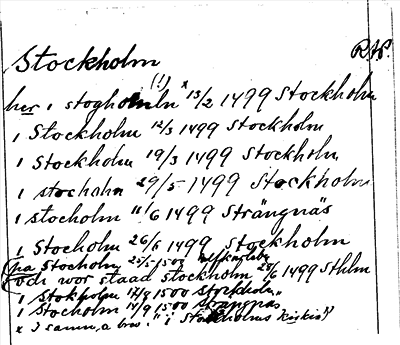 Stockholm RAP
(!) x
her i stogholmln 13/2 1499 Stockholm
i Stockholm 12/3 1499 Stockholm
i Stockholm 19/3 1499 Stockholm
i stochahn 29/5 1499 Stockholm
i stocholm 11/6 1499 Strängnäs
i Stocholm 26/6 1499 Stockholm
pa Stocholm 25/5 1502
och wor staad stockholm 29/6 1499 Sthlm
i Stokholm 17/8 1500 Stockholm
i Stocholm 14/9 1500 Strängnäs
x I samm. a brev: "i Stokholms